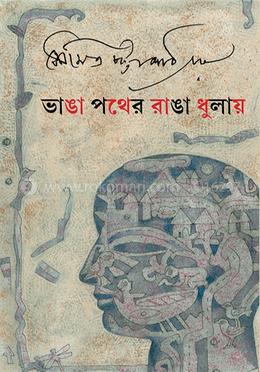 সৌমিত্র চট্টোপাধ্যায়
ভাঙা পথের রাঙা ধুলায়
www.rokomari.com